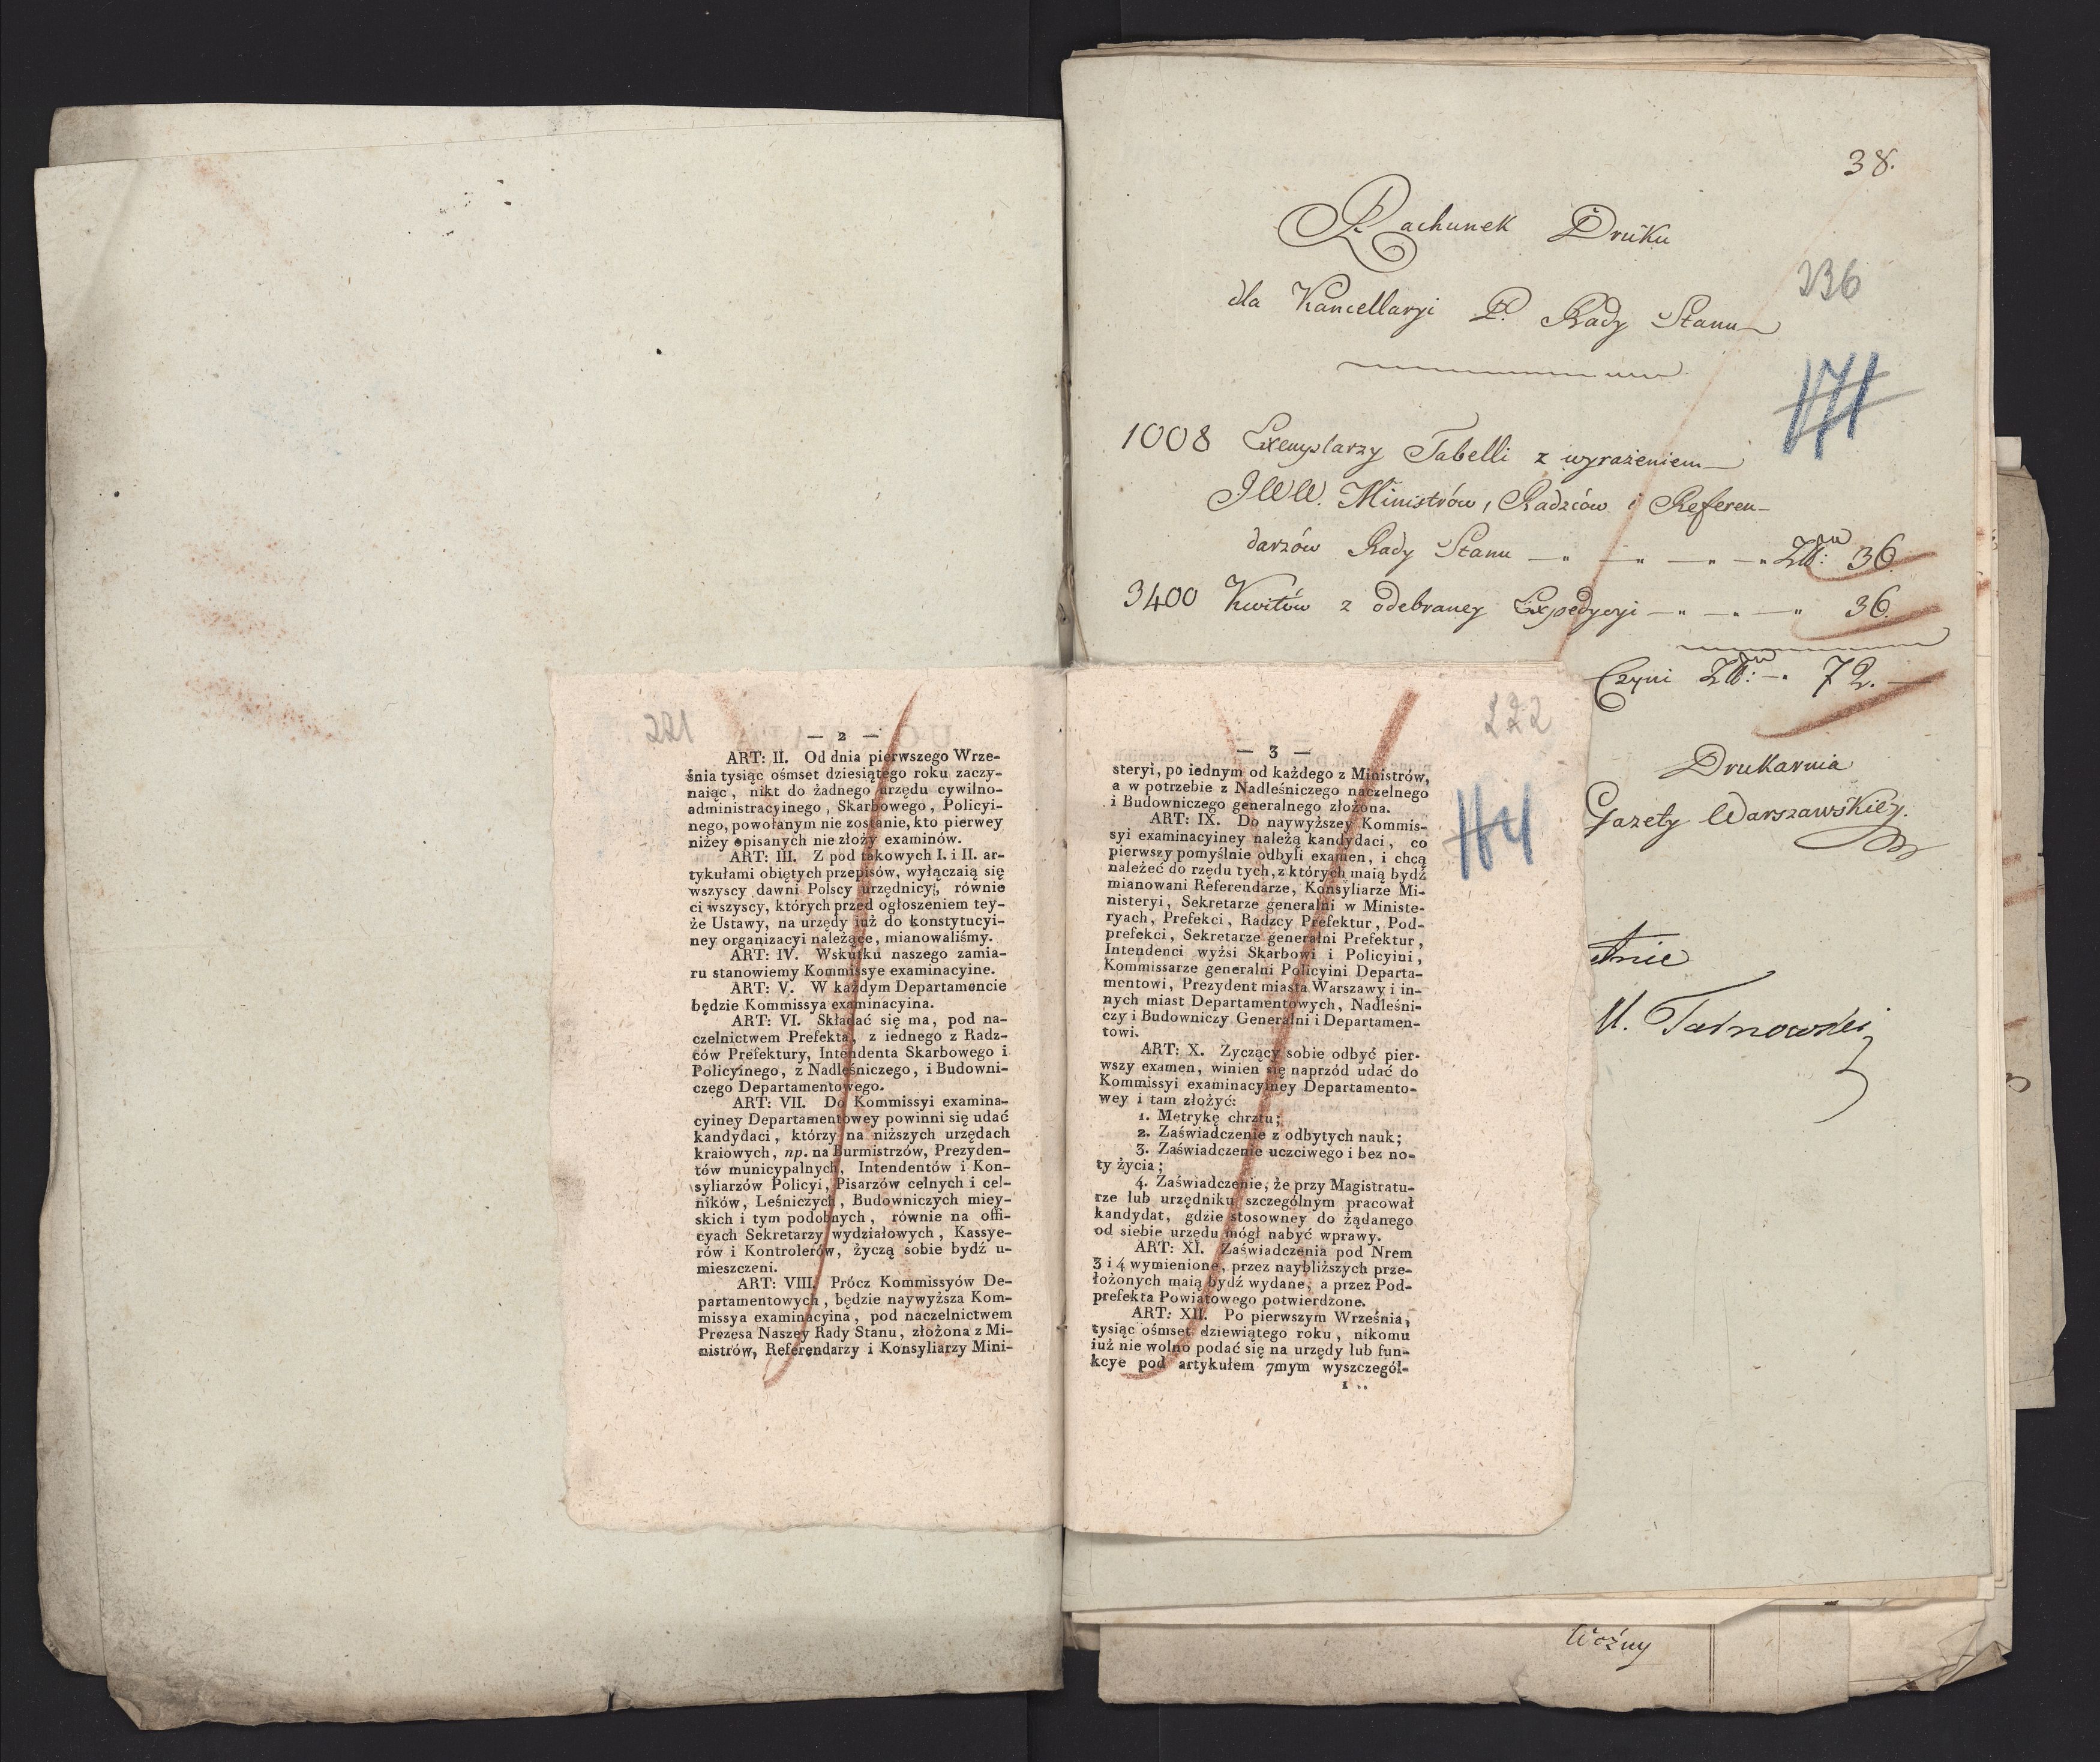 38.
Rachunek Druku
236
dla Kancellaryi P. Rady Stanu
171
1008 Exemplarzy Tabelli z wyrażeniem
JWW. Ministrów, Radzców i Referen-
darzów Rady Stanu — " — " — " — " Złł: 36.
3400 Kwitów z odebraney Expedycyi — " — " — " 36.
Czyni Złł: — " 72. —
Drukarnia
Gazety Warszawskiey.
tnie
M. Tarnowski
Woźny
221
— 2 —
ART: II. Od dnia pierwszego Wrze-
śnia tysiąc ośmset dziesiątego roku zaczy-
naiąc, nikt do żadnego urzędu cywilno-
administracyinego, Skarbowego, Policyi-
nego, powołanym nie zostanie, kto pierwey
niżey opisanych nie złoży examinów.
ART: III. Z pod takowych I. i II. ar-
tykułami obiętych przepisów, wyłączaią się
wszyscy dawni Polscy urzędnicy, równie
ci wszyscy, których przed ogłoszeniem tey-
że Ustawy, na urzędy iuż do konstytucyi-
ney organizacyi należące, mianowaliśmy.
ART: IV. Wskutku naszego zamia-
ru stanowiemy Kommissye examinacyine.
ART: V. W każdym Departamencie
będzie Kommissya examinacyina.
ART: VI. Składać się ma, pod na-
czelnictwem Prefekta, z iednego z Radz-
ców Prefektury, Intendenta Skarbowego i
Policyinego, z Nadleśniczego, i Budowni-
czego Departamentowego.
ART: VII. Do Kommissyi examina-
cyiney Departamentowey powinni się udać
kandydaci, którzy na niższych urzędach
kraiowych, np. na Burmistrzów, Prezyden-
tów municypalnych, Intendentów i Kon-
syliarzów Policyi, Pisarzów celnych i cel-
ników, Leśniczych, Budowniczych miey-
skich i tym podobnych, równie na offi-
cyach Sekretarzy wydziałowych, Kassye-
rów i Kontrolerów, życzą sobie bydź u-
mieszczeni.
ART: VIII. Prócz Kommissyów De-
partamentowych, będzie naywyższa Kom-
missya examinacyina, pod naczelnictwem
Prezesa Naszey Rady Stanu, złożona z Mi-
nistrów, Referendarzy i Konsyliarzy Mini-
222
— 3 —
184
steryi, po iednym od każdego z Ministrów,
a w potrzebie z Nadleśniczego naczelnego
i Budowniczego generalnego złożona.
ART: IX. Do naywyższey Kommis-
syi examinacyiney należą kandydaci, co
pierwszy pomyślnie odbyli examen, i chcą
należeć do rzędu tych, z których maią bydź
mianowani Referendarze, Konsyliarze Mi-
nisteryi, Sekretarze generalni w Ministe-
ryach, Prefekci, Radzcy Prefektur, Pod-
prefekci, Sekretarze generalni Prefektur,
Intendenci wyżsi Skarbowi i Policyini,
Kommissarze generalni Policyini Departa-
mentowi, Prezydent miasta Warszawy i in-
nych miast Departamentowych, Nadleśni-
czy i Budowniczy Generalni i Departamen-
towi.
ART: X. Zyczący sobie odbyć pier-
wszy examen, winien się naprzód udać do
Kommissyi examinacyiney Departamento-
wey i tam złożyć:
1. Metrykę chrztu;
2. Zaświadczenie z odbytych nauk;
3. Zaświadczenie uczciwego i bez no-
ty życia;
4. Zaświadczenie, że przy Magistratu-
rze lub urzędniku szczególnym pracował
kandydat, gdzie stosowney do żądanego
od siebie urzędu mógł nabyć wprawy.
ART: XI. Zaświadczenia pod Nrem
3 i 4 wymienione, przez naybliższych prze-
łożonych maią bydź wydane, a przez Pod-
prefekta Powiatowego potwierdzone.
ART: XII. Po pierwszym Września,
tysiąc ośmset dziewiątego roku, nikomu
iuż nie wolno podać się na urzędy lub fun-
kcye pod artykułem 7mym wyszczegól-
1 ..